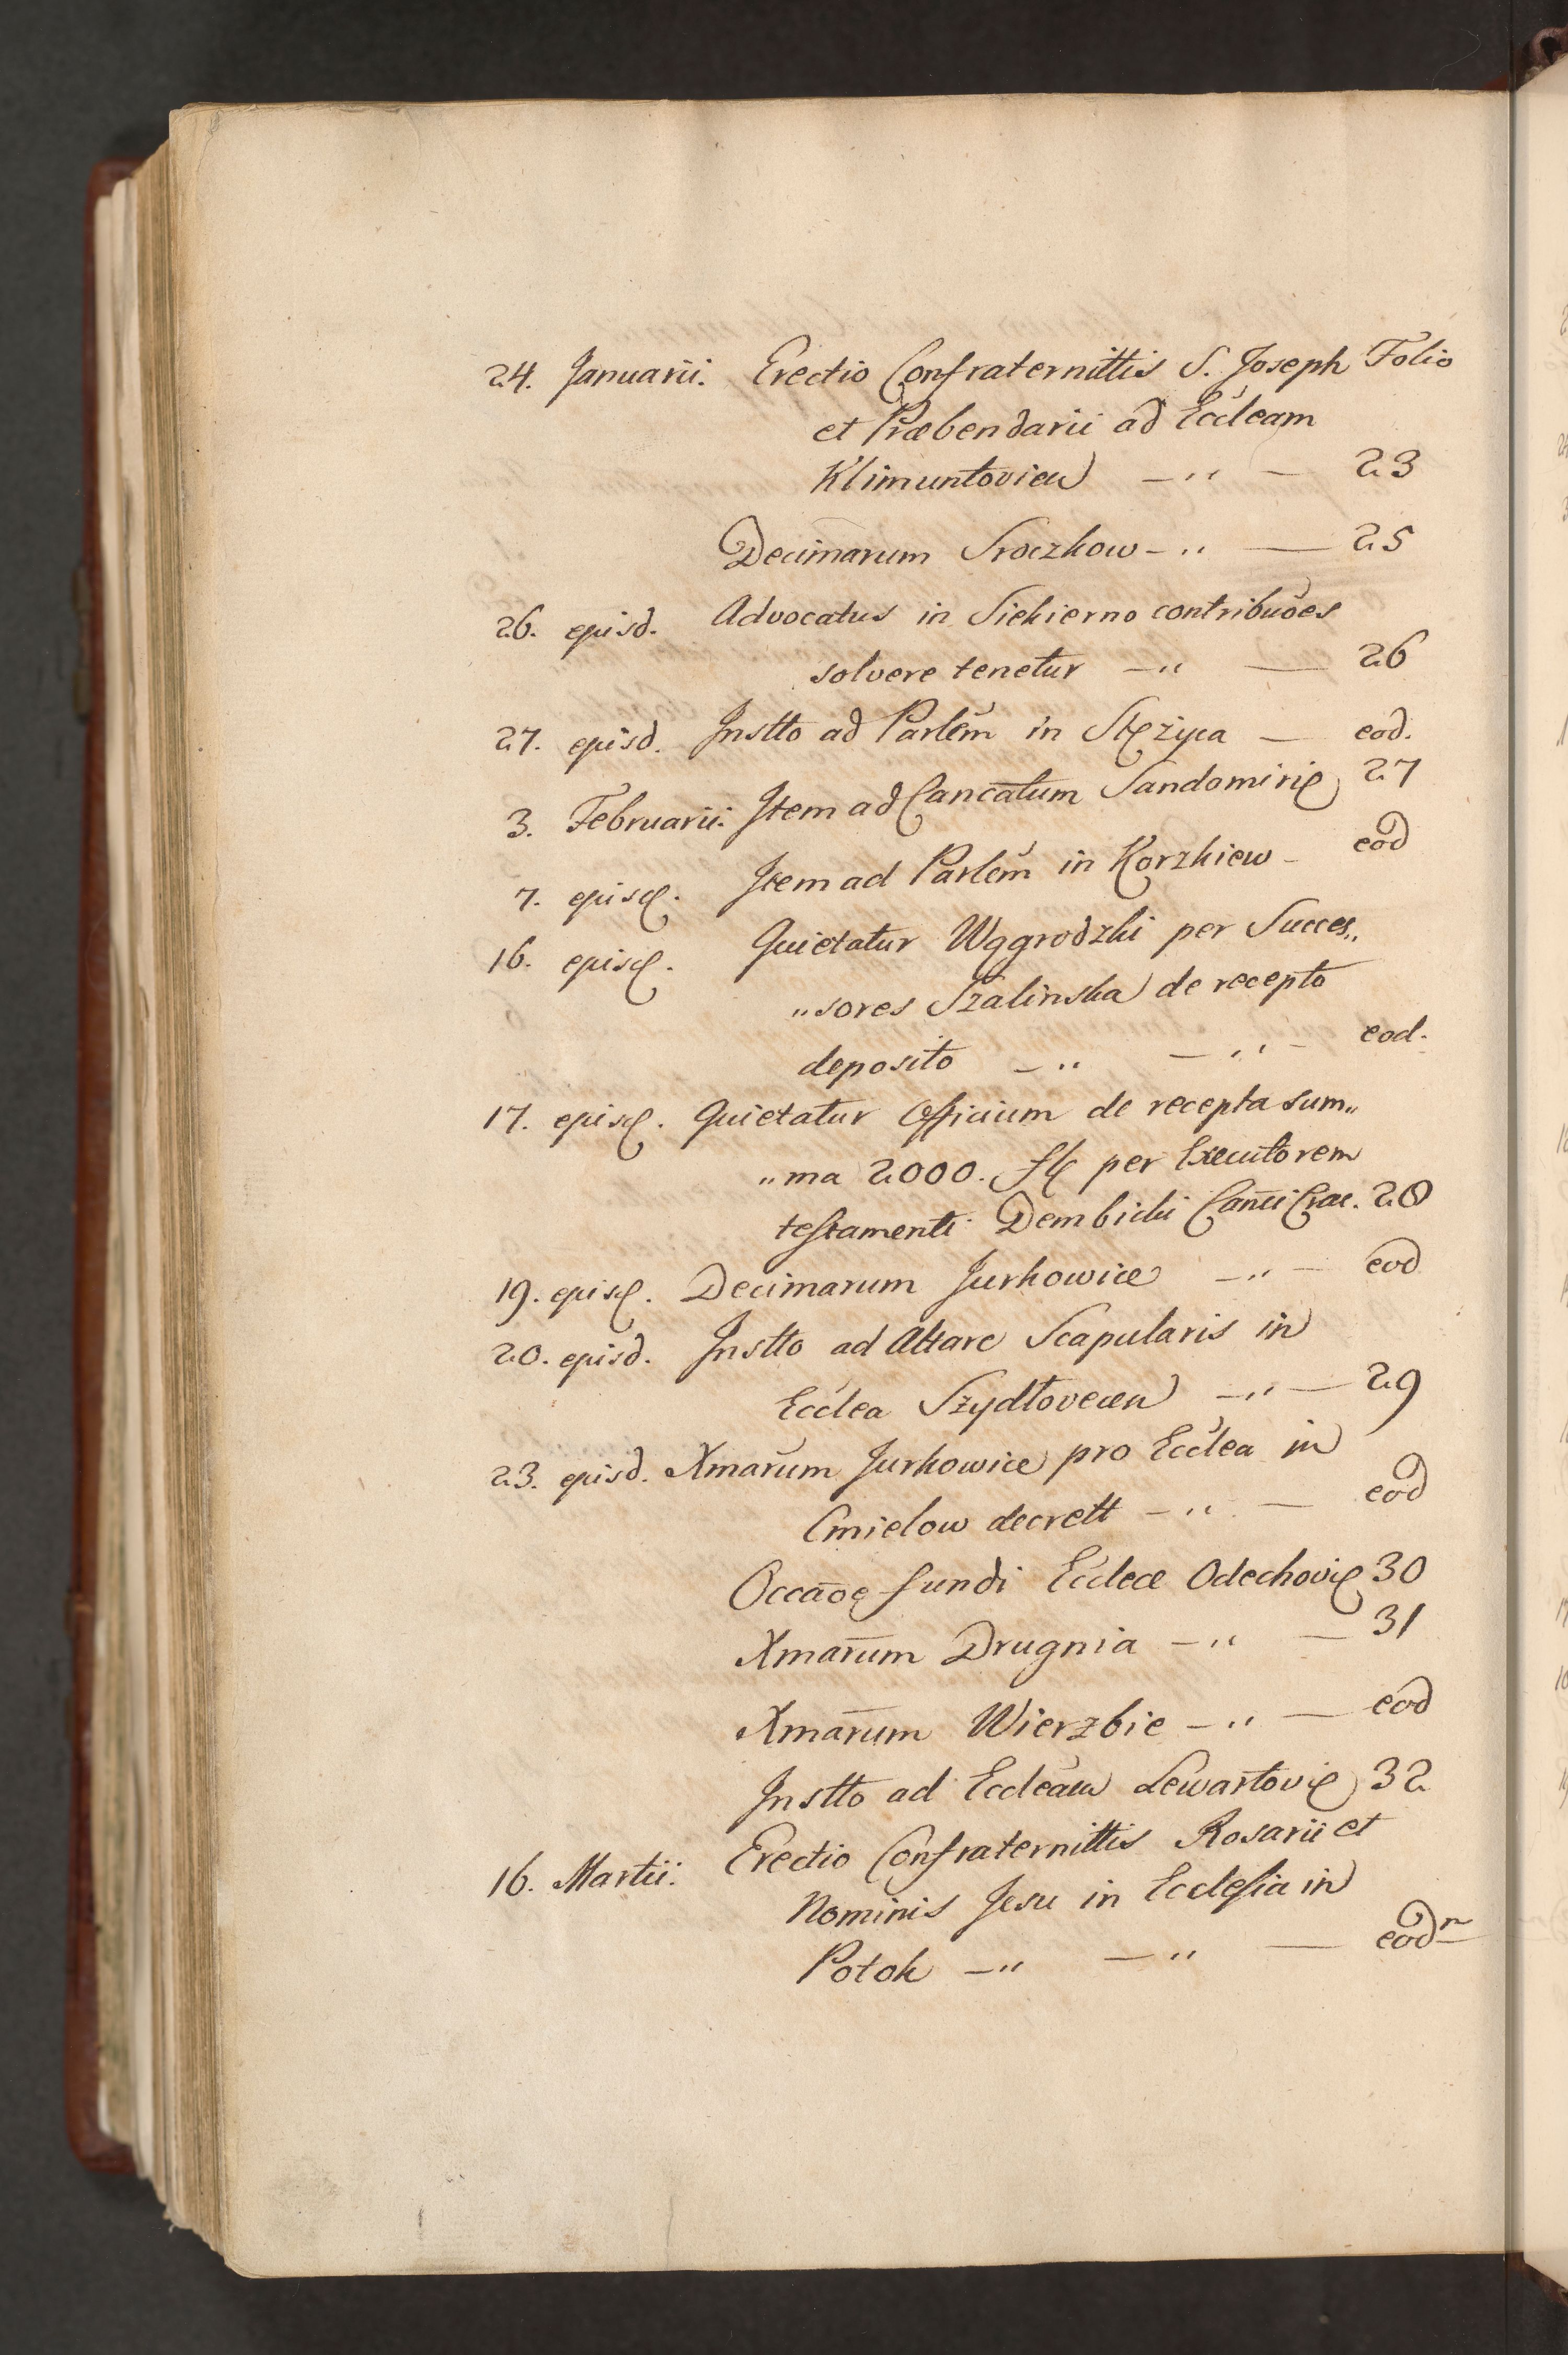 24. Januarii. Erectio Confraternittis S. Joseph Folio
et Præbendarii ad Eccleam
Klimuntovien — „ — 23
Decimarum Sroczkow — „ — 25
26. ejusd. Advocatus in Siekierno contribuões
solvere tenetur — „ — 26
27. ejusd. Instto ad Parlem̃ in Stężyca — eod.
3. Februarii. Item ad Cancãtum Sandomirię 27
7. ejusd. Item ad Parlem̃ in Korzkiew — eod
16. ejusd. Quietatur Węgrodzki per Succes„
„sores Szalinska de recepto
deposito — „ — „ — eod.
17. ejusd. Quietatur Officium de recepta sum„
„ma 2000. fl per Executorem
testamenti Dembicki Canci Crac. 28
19. ejusd. Decimarum Jurkowice — „ — eod
20. ejusd. Instto ad Altare Scapularis in
Ecclea Szydłovecen — „ — 29
23. ejusd. Xmarum Jurkowice pro Ecclea in
Cmielow decrett — „ — eod
Occãoę fundi Eccleæ Odechovię 30
Xmar̃um Drugnia — „ — 31
Xmar̃um Wierzbie — „ — eod
Instto ad Eccleam Lewartovię 32
16. Martii. Erectio Confraternittis Rosarii et
Nominis Jesu in Ecclesia in
Potok — „ — „ — eodm